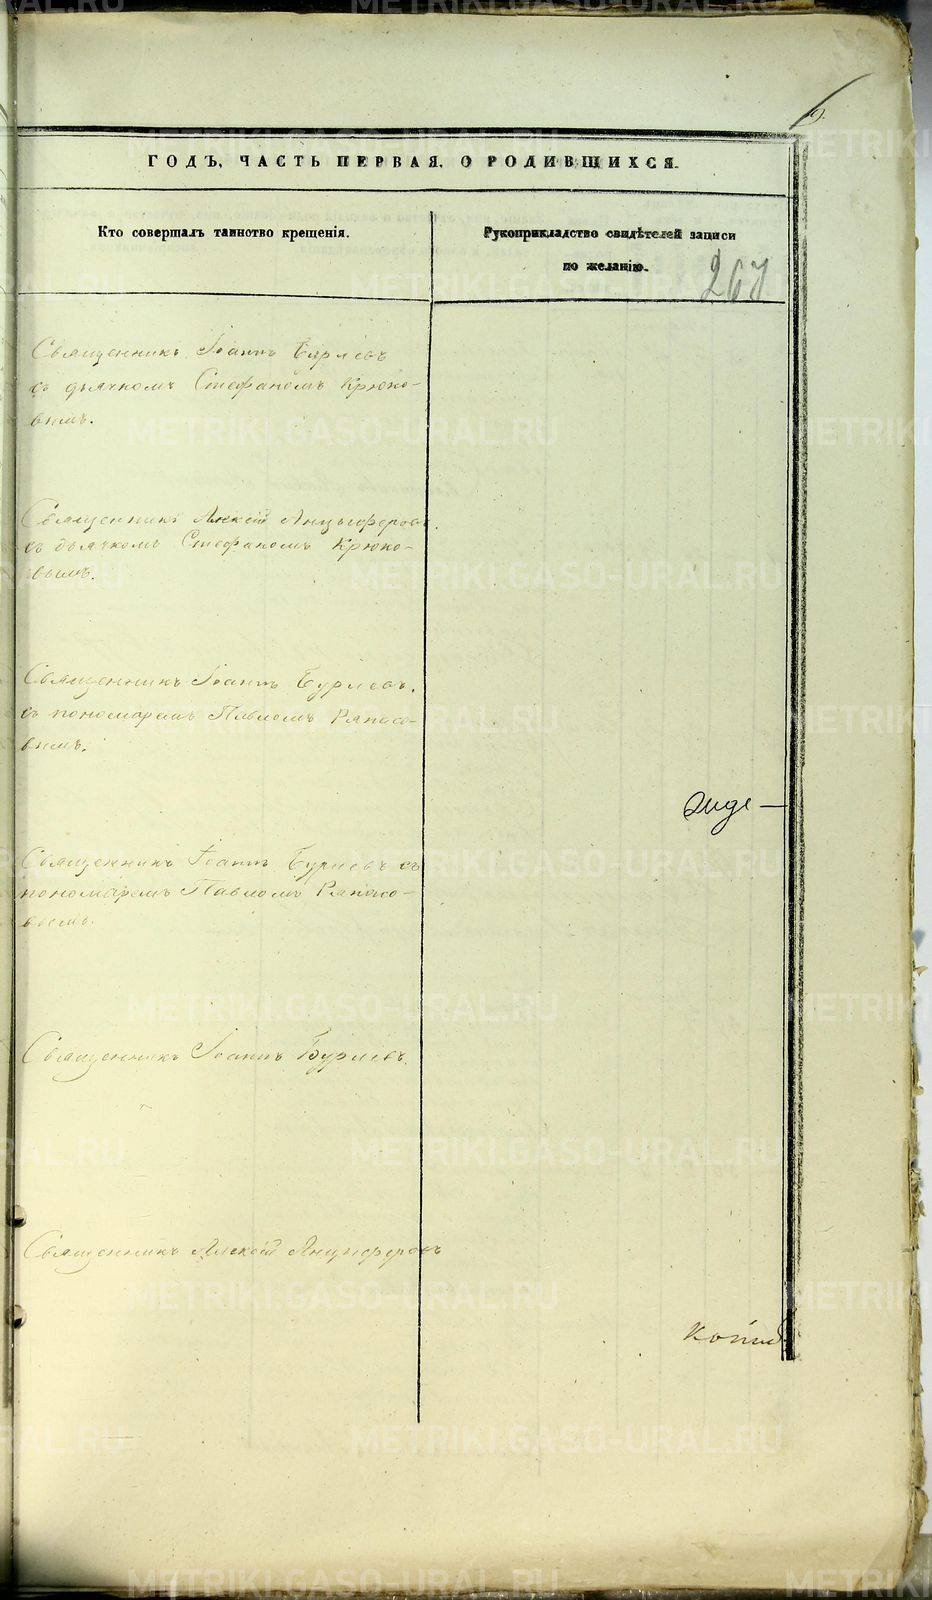 ГОДЪ, ЧАСТЬ ПЕРВАЯ, О РОДИВШИХСЯ.
Кто совершалъ таинство крещенія.
Рукоприкладство свидѣтелей записи
по желанію.
267
Священникъ Іоаннъ Бурлевъ
съ дьячкомъ Стефаномъ Крюко-
вымъ.
Священникъ Алексій Анцыферовъ.
съ дьячкомъ Стефаномъ Крюко-
вымъ.
Священникъ Іоаннъ Бурлевъ.
съ пономаремъ Павломъ Ряпасо-
вымъ.
Священникъ Іоаннъ Бурлевъ съ
пономаремъ Павломъ Ряпасо-
вымъ.
Священникъ Іоаннъ Бурлевъ.
Священникъ Алексій Анцыферовъ
METRIKI.GASO-URAL.RU